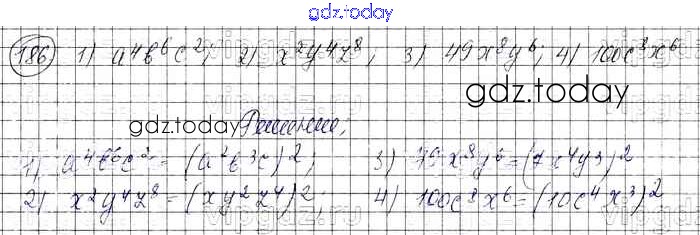 gdz.today
186 1) a⁴b⁶c²; 2) x²y⁴z⁸; 3) 49x⁸y⁶; 4) 100c⁸x⁶
gdz.today
gdz.today
Решение,
1) a⁴b⁶c² = (a²b³c)²; 3) 49x⁸y⁶ = (7x⁴y³)²
2) x²y⁴z⁸ = (xy²z⁴)²; 4) 100c⁸x⁶ = (10c⁴x³)²